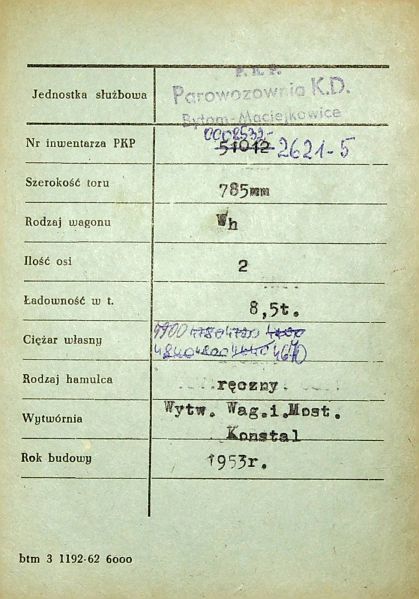 P. K. P.
Jednostka służbowa Parowozownia K.D.
Bytom-Maciejkowice
0002532-
Nr inwentarza PKP 51012 2621-5
Szerokość toru 785mm
Rodzaj wagonu Wh
Ilość osi 2
Ładowność w t. 8,5t.
4900 4780 4720
Ciężar własny
4840 4800 4640 4670
Rodzaj hamulca ręczny
Wytw. Wag.i.Most.
Wytwórnia
Konstal
Rok budowy 1953r.
btm 3 1192-62 6000